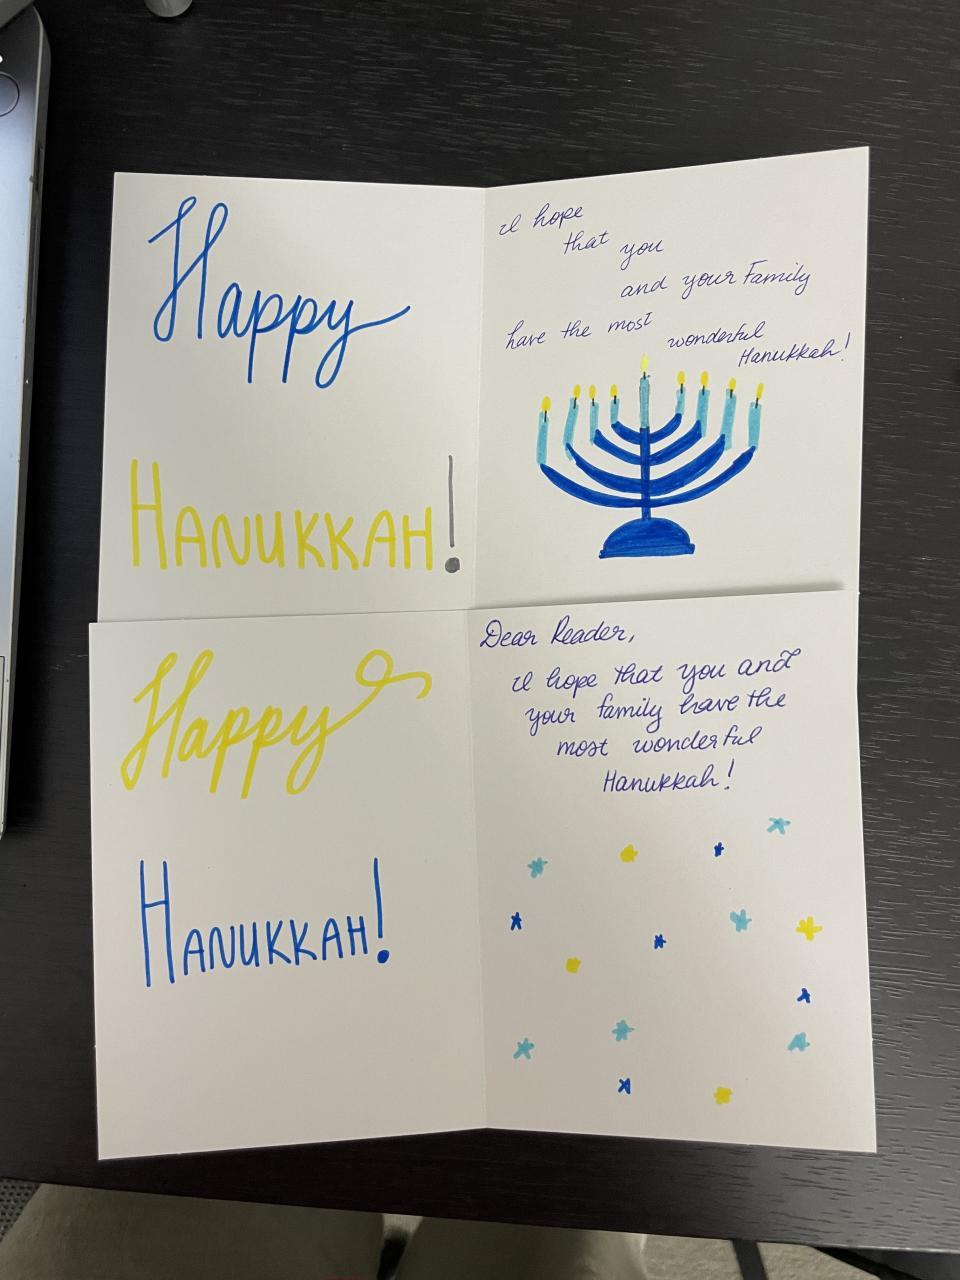 Happy
HANUKKAH!
I hope
that you
and your Family
have the most
wonderful
Hanukkah!
Happy
HANUKKAH!
Dear Reader,
I hope that you and
your family have the
most wonderful
Hanukkah!